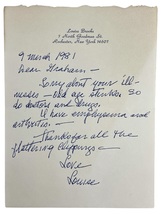 Louise Brooks
7 North Goodman St.
Rochester, New York 14607
9 March 1981
Dear Graham -
Sorry about your ill-
nesses - old age stinks. So
do doctors and drugs.
I have emphysema and
arthritis -
Thanks for all the
flattering clippings -
Love
Louise